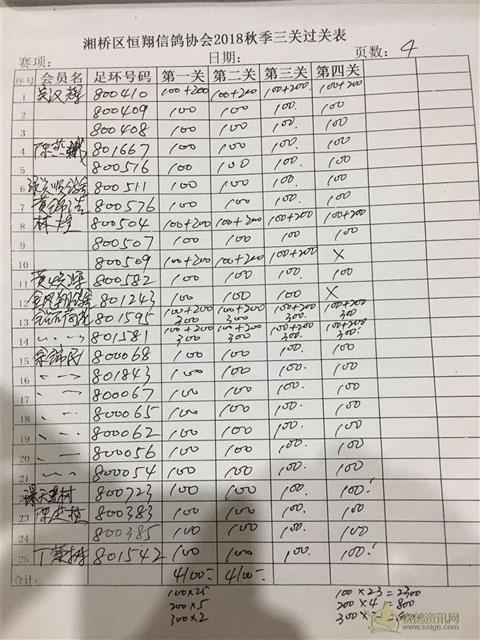 湘桥区恒翔信鸽协会2018秋季三关过关表
赛项： 日期： 页数： 4
序号 会员名 足环号码 第一关 第二关 第三关 第四关
1 吴汉辉 800410 100+200 100+200 100+200 100+200
2 800409 100 100 100 100
3 800408 100 100 100 100
4 801667 100 100 100 100
5 800516 100 100 100 100
6 800511 100 100 100 100
7 800576 100 100 100 100
8 800504 100+200 100+200 100+200 100+200
9 800507 100 100 100 100
10 800509 100+200 100+200 100+200 ×
11 800582 100 100 100 100
12 801243 100 100 100 ×
13 801595 100+200 300 100+200 300 100+200 300 100+200 300
14 801581 100+200 300 100+200 300 100+200 300 100+200 300
15 800068 100 100 100 100
16 801843 100 100 100 100
17 800067 100 100 100 100
18 800065 100 100 100 100
19 800062 100 100 100 100
20 800056 100 100 100 100
21 800054 100 100 100 100
800723 100 100 100 100
23 800383 100 100 100 100
24 800385 100 100 100 100
25 801542 100 100 100 100
合计： 4100 4100
100×25 100×23=2300
200×5 200×4=800
300×2 300×
赛鸽资讯网
www.saige.com